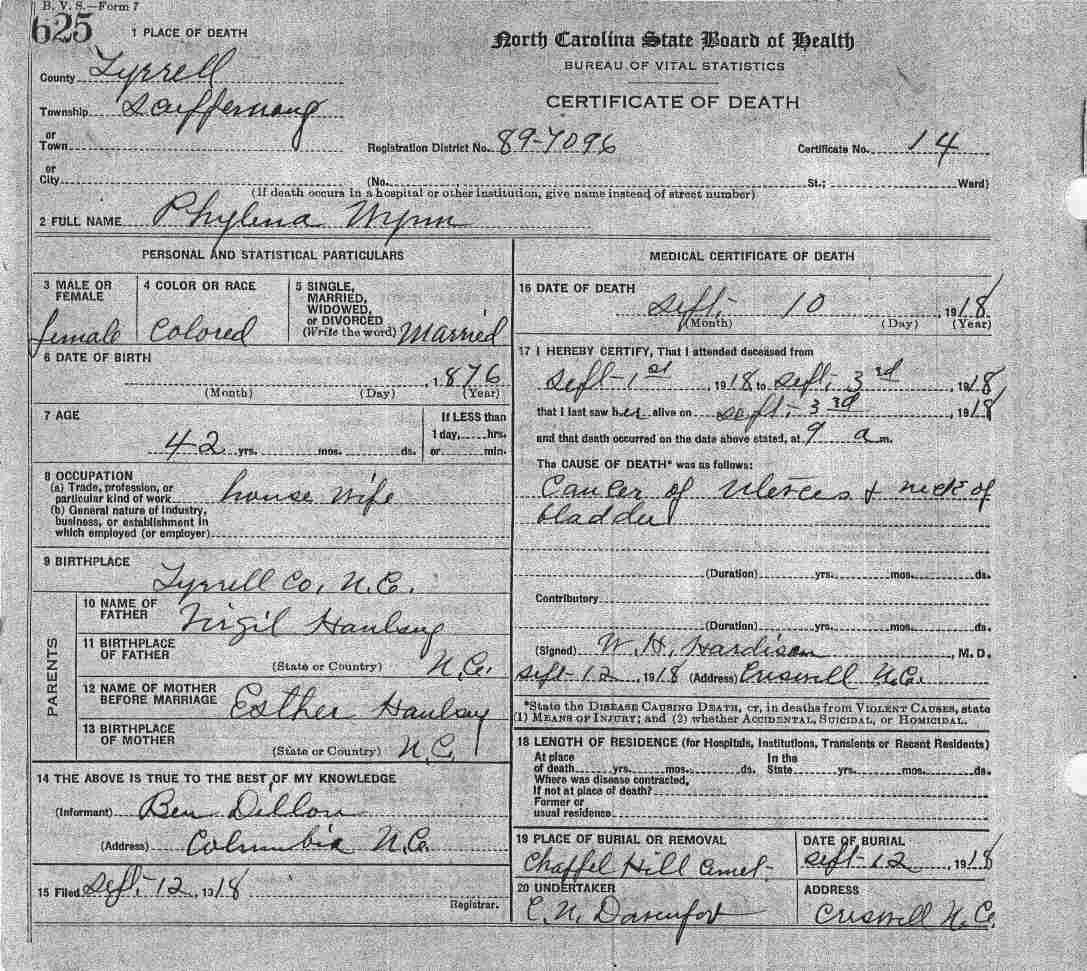 B. V. S.—Form 7
625
1 PLACE OF DEATH
North Carolina State Board of Health
BUREAU OF VITAL STATISTICS
CERTIFICATE OF DEATH
County Tyrrell
Township Scuffernong
or
Town
Registration District No. 89-7096
Certificate No. 14
or
City
(No. St.; Ward)
(If death occurs in a hospital or other institution, give name instead of street number)
2 FULL NAME Phylena Wynn
PERSONAL AND STATISTICAL PARTICULARS
3 MALE OR FEMALE female
4 COLOR OR RACE Colored
5 SINGLE, MARRIED, WIDOWED, or DIVORCED (Write the word) Married
6 DATE OF BIRTH , 1876
(Month) (Day) (Year)
7 AGE
42 yrs. mos. ds.
If LESS than
1 day, hrs.
or min.
8 OCCUPATION
(a) Trade, profession, or
particular kind of work house wife
(b) General nature of industry,
business, or establishment in
which employed (or employer)
9 BIRTHPLACE
Tyrrell Co, N.C.
PARENTS
10 NAME OF FATHER Virgil
11 BIRTHPLACE OF FATHER
(State or Country) N.C.
12 NAME OF MOTHER BEFORE MARRIAGE Esther
13 BIRTHPLACE OF MOTHER
(State or Country) N.C.
14 THE ABOVE IS TRUE TO THE BEST OF MY KNOWLEDGE
(Informant) Ben Dillon
(Address) Columbia N.C.
15 Filed Sept. 12, 1918
Registrar.
MEDICAL CERTIFICATE OF DEATH
16 DATE OF DEATH
Sept. 10, 1918
(Month) (Day) (Year)
17 I HEREBY CERTIFY, That I attended deceased from
Sept-1st, 1918 to Sept. 3rd, 1918
that I last saw her alive on Sept. 3rd, 1918
and that death occurred on the date above stated, at 9 a m.
The CAUSE OF DEATH* was as follows:
Cancer of & neck of
bladder
(Duration) yrs. mos. ds.
Contributory
(Duration) yrs. mos. ds.
(Signed) W. H. Hardison, M. D.
Sept-12, 1918 (Address) Criswell N.C.
*State the DISEASE CAUSING DEATH, or, in deaths from VIOLENT CAUSES, state
(1) MEANS OF INJURY; and (2) whether ACCIDENTAL, SUICIDAL, or HOMICIDAL.
18 LENGTH OF RESIDENCE (for Hospitals, Institutions, Transients or Recent Residents)
At place In the
of death yrs. mos. ds. State yrs. mos. ds.
Where was disease contracted,
If not at place of death?
Former or
usual residence
19 PLACE OF BURIAL OR REMOVAL
Chappel Hill Cemet.
DATE OF BURIAL
Sept-12 1918
20 UNDERTAKER
C. N. Davenport
ADDRESS
Criswell N.C.